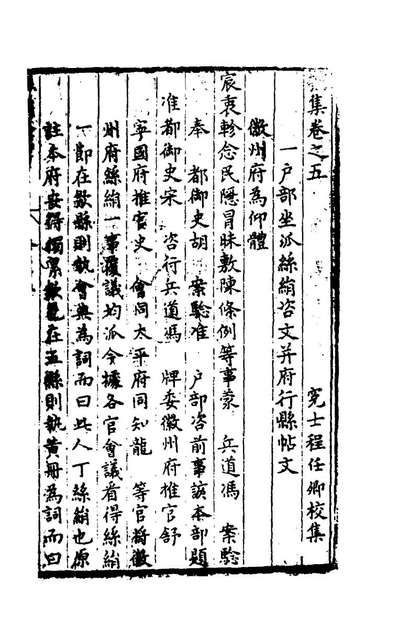 集卷之五
宛士程任卿校集
一戶部坐派絲絹咨文并府行縣帖文
徽州府為仰體
宸衷軫念民隱冒昧敷陳條例等事蒙　兵道馮　案驗
奉　都御史胡　案驗准　戶部咨前事該本部題
准都御史宋　咨行兵道馮　牌委徽州府推官舒
寧國府推官史　會同太平府同知龍　等官將徽
州府絲絹一事覆議均派今據各官會議看得絲絹
一節在歙縣則執會典為詞而曰此人丁絲絹也原
註本府安得獨累歙邑在五縣則執黃冊為詞而曰